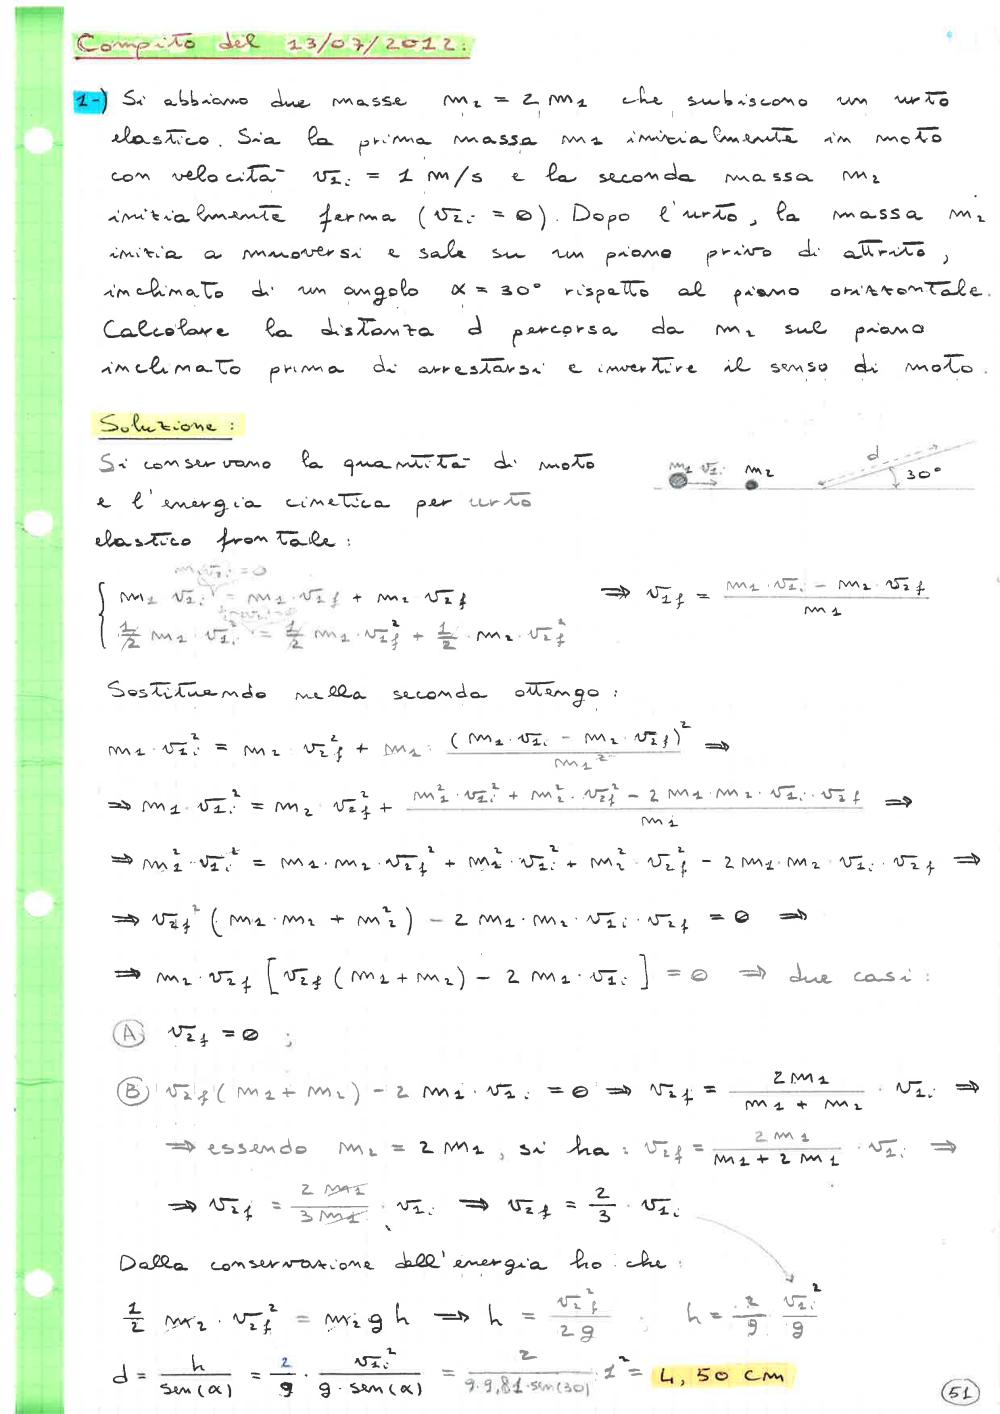 Compito del 13/07/2012:
1-) Si abbiano due masse m₂ = 2 m₁ che subiscono un urto
elastico. Sia la prima massa m₁ inizialmente in moto
con velocità v₁ᵢ = 1 m/s e la seconda massa m₂
inizialmente ferma (v₂ᵢ = 0). Dopo l'urto, la massa m₂
inizia a muoversi e sale su un piano privo di attrito,
inclinato di un angolo α = 30° rispetto al piano orizzontale.
Calcolare la distanza d percorsa da m₂ sul piano
inclinato prima di arrestarsi e invertire il senso di moto.
Soluzione:
Si conservano la quantità di moto
e l'energia cinetica per urto
elastico frontale:
m₁ v₁ᵢ m₂ d 30°
m₂v₂ᵢ = 0
{ m₁ v₁ᵢ = m₁ · v₁f + m₂ v₂f ⇒ v₁f = (m₁ · v₁ᵢ − m₂ · v₂f) / m₁
½ m₁ · v₁ᵢ² = ½ m₁ · v₁f² + ½ · m₂ · v₂f²
Sostituendo nella seconda ottengo:
m₁ · v₁ᵢ² = m₂ · v₂f² + m₁ · (m₁ · v₁ᵢ − m₂ · v₂f)² / m₁² ⇒
⇒ m₁ · v₁ᵢ² = m₂ · v₂f² + (m₁² · v₁ᵢ² + m₂² · v₂f² − 2 m₁ · m₂ · v₁ᵢ · v₂f) / m₁ ⇒
⇒ m₁² · v₁ᵢ² = m₁ · m₂ · v₂f² + m₁² · v₁ᵢ² + m₂² · v₂f² − 2 m₁ · m₂ · v₁ᵢ · v₂f ⇒
⇒ v₂f² (m₁ · m₂ + m₂²) − 2 m₁ · m₂ · v₁ᵢ · v₂f = 0 ⇒
⇒ m₂ · v₂f [v₂f (m₁ + m₂) − 2 m₁ · v₁ᵢ] = 0 ⇒ due casi:
(A) v₂f = 0 ;
(B) v₂f (m₁ + m₂) − 2 m₁ · v₁ᵢ = 0 ⇒ v₂f = 2 m₁ / (m₁ + m₂) · v₁ᵢ ⇒
⇒ essendo m₂ = 2 m₁, si ha: v₂f = 2 m₁ / (m₁ + 2 m₁) · v₁ᵢ ⇒
⇒ v₂f = 2 m₁ / 3 m₁ · v₁ᵢ ⇒ v₂f = 2/3 · v₁ᵢ
Dalla conservazione dell'energia ho che:
½ m₂ · v₂f² = m₂ g h ⇒ h = v₂f² / 2g ; h = 2/9 · v₁ᵢ² / g
d = h / sen(α) = 2/9 · v₁ᵢ² / (g · sen(α)) = 2 / (9 · 9,81 · sen(30)) · 1² = 4,50 cm
51